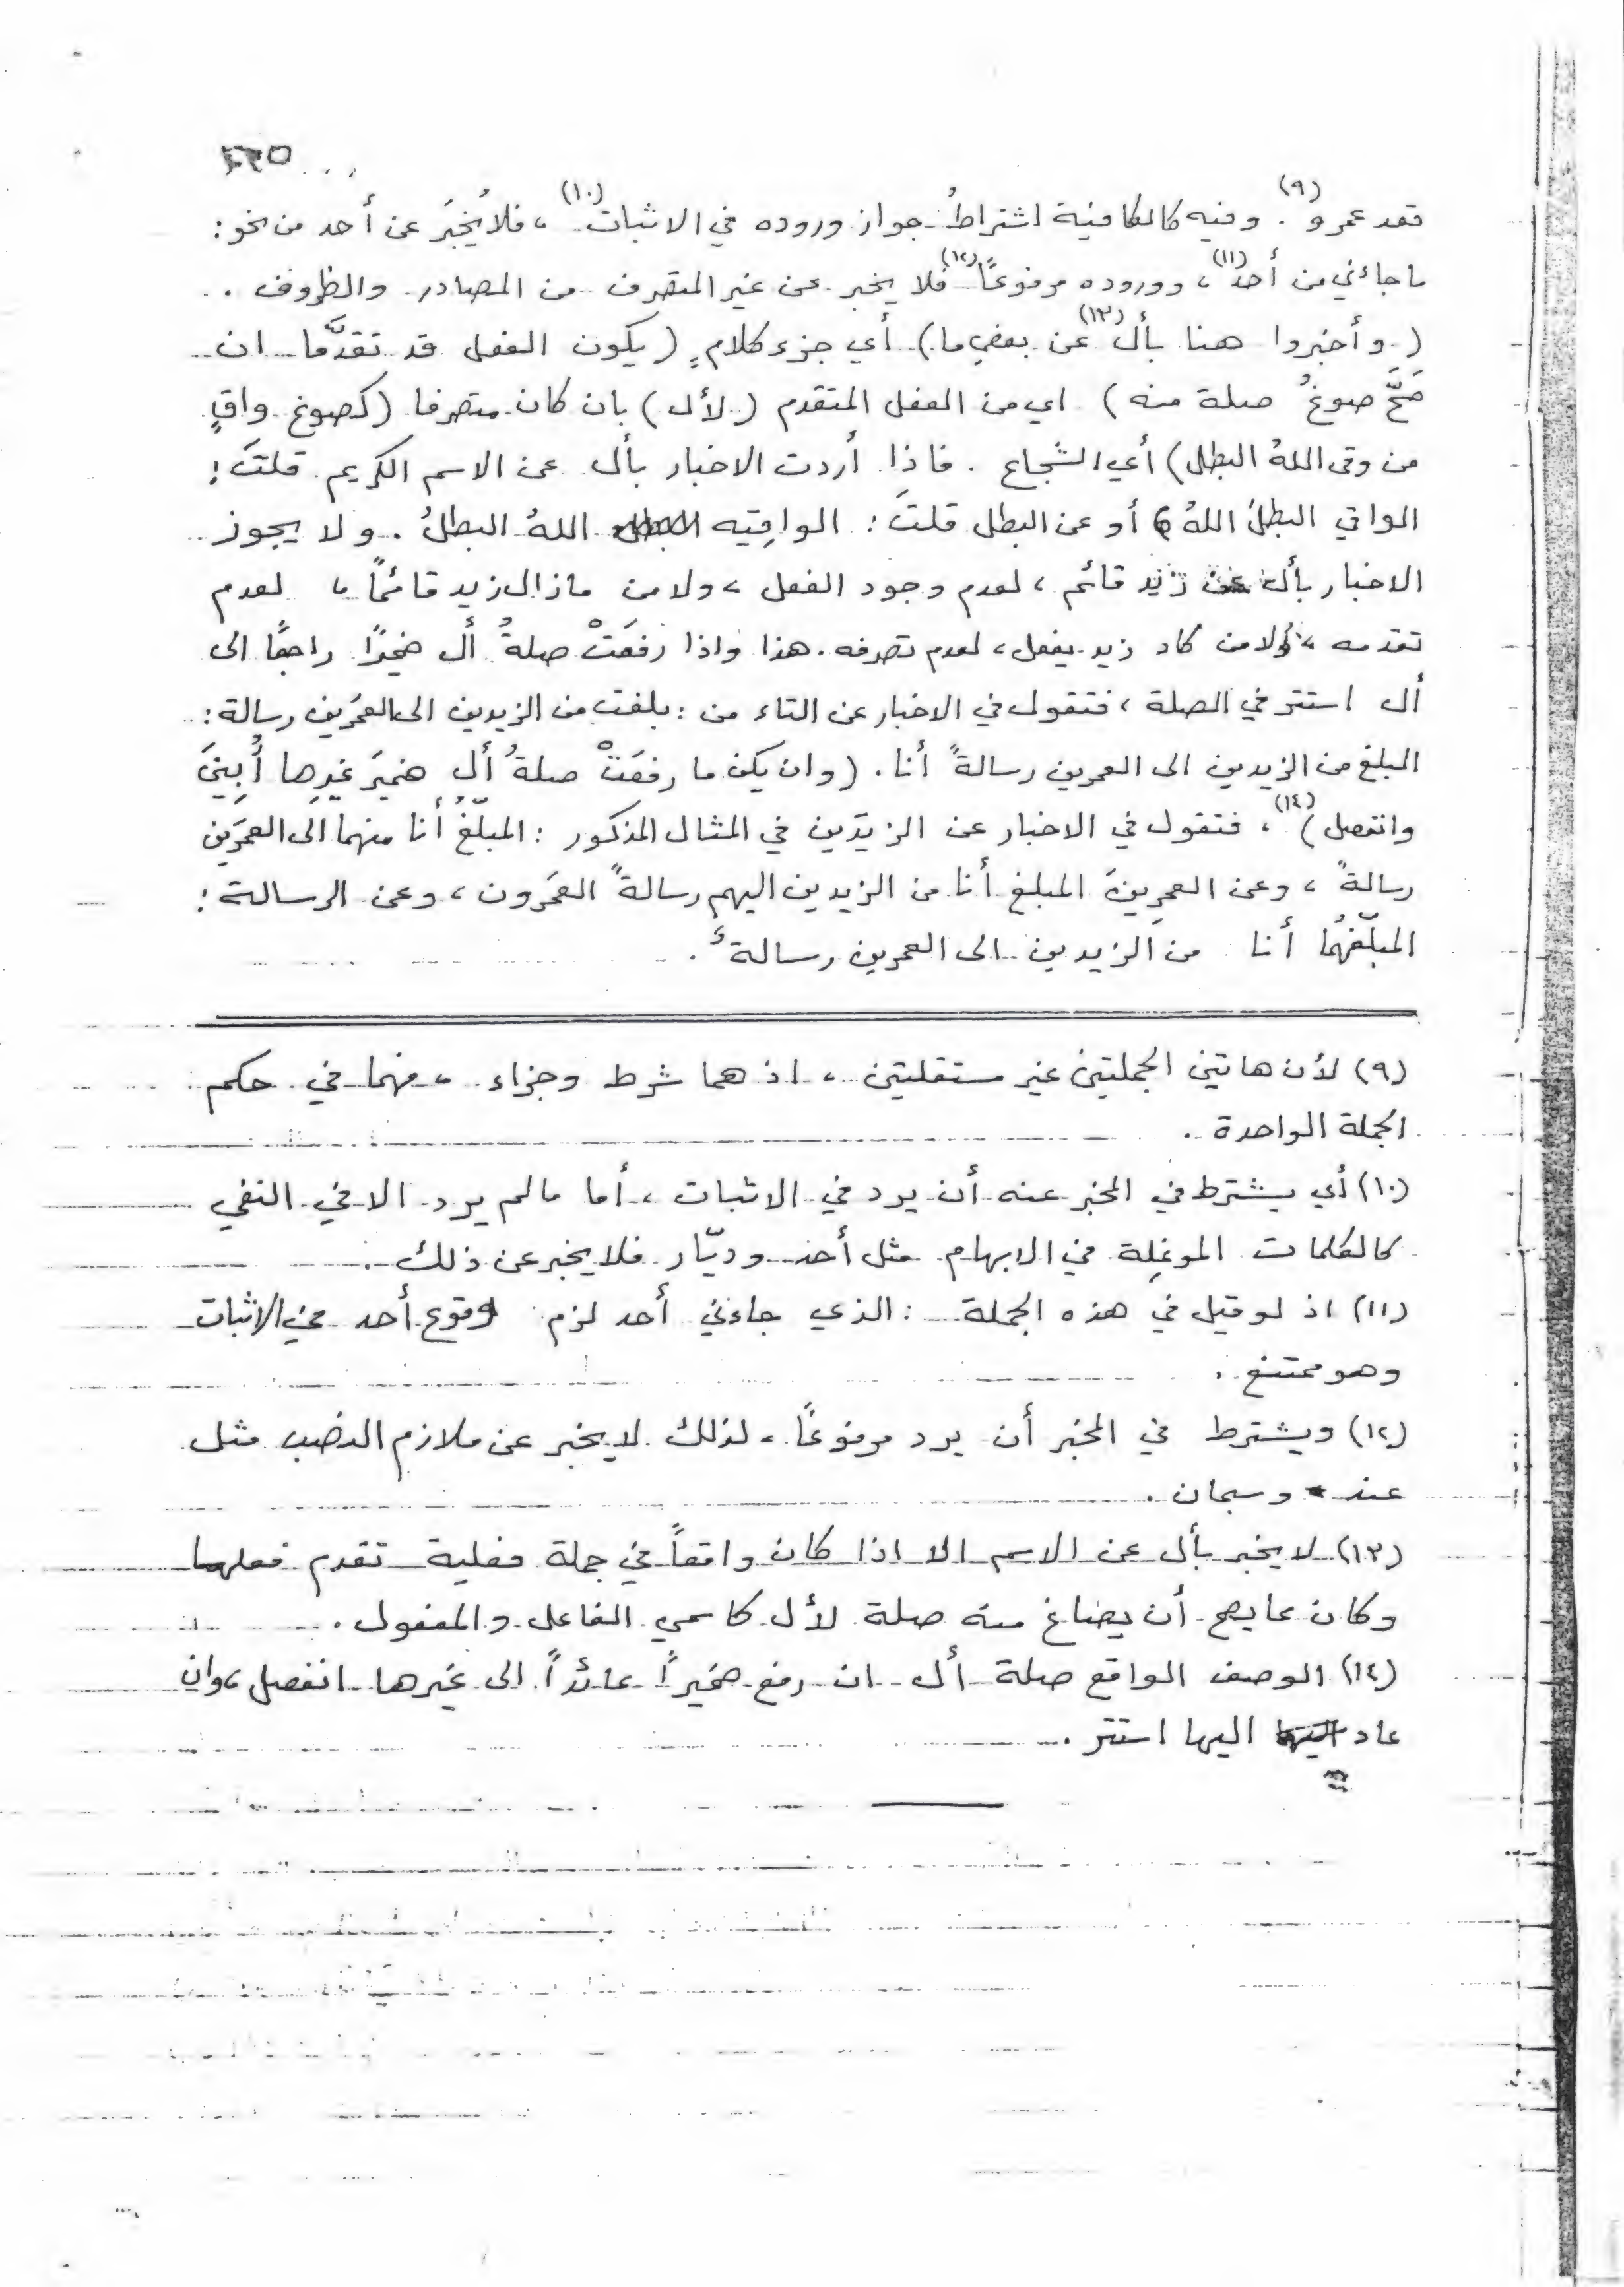 قعد عمرو(٩). وفيه كالكافية اشتراطُ جواز وروده في الاثبات(١٠)، فلا يُخبَرَ عن أحد من نحو:
ما جاءني من أحد(١١)، ووروده مرفوعًا(١٢) فلا يخبر عن غير المتصرف من المصادر والظروف .
( وأخبروا هنا بأل(١٣) عن بعضِ ما ) أي جزء كلامٍ ( يكون الفعل قد تقدَّما ان
صَحَّ صوغُ صلة منه ) اي من الفعل المتقدم ( لأل ) بان كان متصرفا ( كصوغ واقٍ
من وقى اللهُ البطل ) أي الشجاع . فاذا أردت الاخبار بأل عن الاسم الكريم قلتَ :
الواقي البطلَ اللهُ ، أو عن البطل قلتَ : الواقِيه اللهُ البطلُ . ولا يجوز
الاخبار بأل عن زيد قائم ، لعدم وجود الفعل ، ولا من ما زال زيد قائمًا ، لعدم
تقدمه ، ولا من كاد زيد يفعل ، لعدم تصرفه . هذا واذا رفعَتْ صلةُ أل ضميرًا راجعًا الى
أل استتر في الصلة ، فتقول في الاخبار عن التاء من : بلغت من الزيدين الى العمَرين رسالة :
المبلغ من الزيدين الى العمرين رسالةً أنا . ( وان يكن ما رفعَتْ صلةُ أل ضميرَ غيرِها أُبِينَ
وانفصل )(١٤) ، فتقول في الاخبار عن الزيدَين في المثال المذكور : المبلّغُ أنا منهما الى العمَرَين
رسالةً ، وعن العمرِينَ المبلغ أنا من الزيدين اليهم رسالةً العمَرون ، وعن الرسالة :
المبلّغُها أنا من الزيدين الى العمرين رسالةٌ .
(٩) لأن هاتين الجملتين غير مستقلتين ، اذ هما شرط وجزاء ، فهما في حكم
الجملة الواحدة .
(١٠) أي يشترط في المخبر عنه أن يرد في الاثبات ، أما ما لم يرد الا في النفي
كالكلمات الموغِلة في الابهام مثل أحد وديّار فلا يخبر عن ذلك .
(١١) اذ لو قيل في هذه الجملة : الذي جاءني أحد لزم وقوع أحد في الاثبات
وهو ممتنع .
(١٢) ويشترط في المخبر أن يرد مرفوعًا ، لذلك لا يخبر عن ملازم النصب مثل
عند وسبحان .
(١٣) لا يخبر بأل عن الاسم الا اذا كان واقعاً في جملة فعلية تقدم فعلها
وكان مما يصح أن يصاغ منه صلة لأل كاسمي الفاعل والمفعول .
(١٤) الوصف الواقع صلة أل ان رفع ضميراً عائداً الى غيرها انفصل ، وان
عاد اليها استتر .